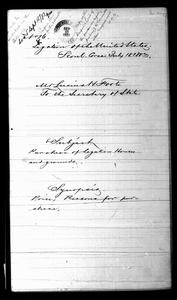 Legation of the United States,
Seoul, Corea July 18th 83,
Mr Lucius H. Foote
To the Secretary of State
Subject
Purchase of Legation House
and grounds.
Synopsis
Price, Reasons for pur
chase.